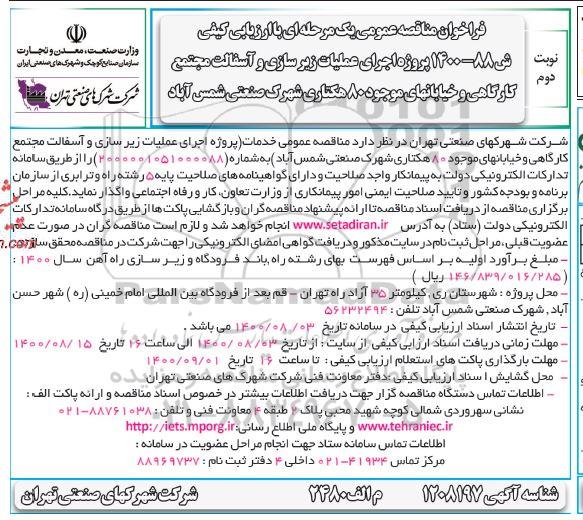 وزارت صنعت، معدن و تجارت
سازمان صنایع کوچک و شهرک های صنعتی ایران
شرکت شهرک‌های صنعتی تهران
فراخوان مناقصه عمومی یک مرحله ای با ارزیابی کیفی
ش ۸۸-۱۴۰۰ پروژه اجرای عملیات زیر سازی و آسفالت مجتمع
کارگاهی و خیابانهای موجود ۸۰ هکتاری شهرک صنعتی شمس آباد
نوبت
دوم
شرکت شهرکهای صنعتی تهران در نظر دارد مناقصه عمومی خدمات(پروژه اجرای عملیات زیر سازی و آسفالت مجتمع
کارگاهی و خیابانهای موجود ۸۰ هکتاری شهرک صنعتی شمس آباد) به شماره (۲۰۰۰۰۰۱۰۵۱۰۰۰۰۸۸) را از طریق سامانه
تدارکات الکترونیکی دولت به پیمانکار واجد صلاحیت و دارای گواهینامه های صلاحیت پایه ۵ رشته راه و ترابری از سازمان
برنامه و بودجه کشور و تأیید صلاحیت ایمنی امور پیمانکاری از وزارت تعاون، کار و رفاه اجتماعی واگذار نماید. کلیه مراحل
برگزاری مناقصه از دریافت اسناد مناقصه تا ارائه پیشنهاد مناقصه گران و بازگشایی پاکت ها از طریق درگاه سامانه تدارکات
الکترونیکی دولت (ستاد) به آدرس www.setadiran.ir انجام خواهد شد و لازم است مناقصه گران در صورت عدم
عضویت قبلی، مراحل ثبت نام در سایت مذکور و دریافت گواهی امضای الکترونیکی را جهت شرکت در مناقصه محقق سازند.
– مبلغ برآورد اولیه بر اساس فهرست بهای رشته راه، باند فرودگاه و زیر سازی راه آهن سال ۱۴۰۰ :
(۱۴۶/۸۳۹/۰۱۶/۲۸۵ ریال )
– محل پروژه : شهرستان ری، کیلومتر ۳۵ آزاد راه تهران – قم بعد از فرودگاه بین المللی امام خمینی (ره ) شهر حسن
آباد ، شهرک صنعتی شمس آباد تلفن : ۵۶۲۳۲۴۹۴
– تاریخ انتشار اسناد ارزیابی کیفی در سامانه تاریخ ۱۴۰۰/۰۸/۰۳ می باشد .
– مهلت زمانی دریافت اسناد ارزیابی کیفی از سایت : از تاریخ ۱۴۰۰/۰۸/۰۳ الی ساعت ۱۶ تاریخ ۱۴۰۰/۰۸/۱۵
– مهلت بارگذاری پاکت های استعلام ارزیابی کیفی : تا ساعت ۱۶ تاریخ ۱۴۰۰/۰۹/۰۱
– محل گشایش اسناد ارزیابی کیفی :دفتر معاونت فنی شرکت شهرک های صنعتی تهران
– اطلاعات تماس دستگاه مناقصه گزار جهت دریافت اطلاعات بیشتر در خصوص اسناد مناقصه و ارائه پاکت الف :
نشانی سهروردی شمالی کوچه شهید محبی پلاک ۲ طبقه ۴ معاونت فنی و تلفن : ۸۸۷۶۱۰۳۸-۰۲۱
www.tehraniec.ir و پایگاه ملی اطلاع رسانی: http://iets.mporg.ir
اطلاعات تماس سامانه ستاد جهت انجام مراحل عضویت در سامانه :
مرکز تماس ۴۱۹۳۴-۰۲۱ داخلی ۴ دفتر ثبت نام : ۸۸۹۶۹۷۳۷
شناسه آگهی ۱۲۰۸۱۹۷
م الف ۲۴۸۰
شرکت شهرکهای صنعتی تهران